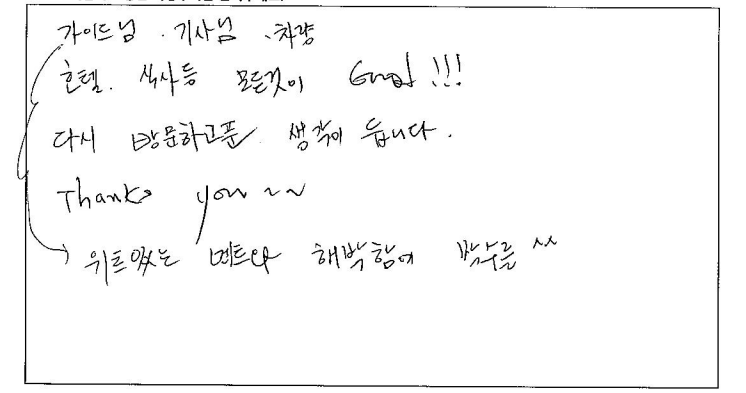 가이드님 . 기사님 . 차량
호텔. 식사등 모든것이 Good !!!
다시 방문하고픈 생각이 듭니다.
Thanks you ~~
위트있는 멘트와 해박함에 박수를 ^^